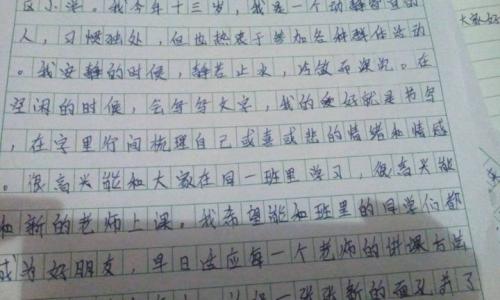 我今年十三岁，我是一个动静皆宜的
大家好
人，习惯独处，但也热衷于参加各种集体活动
。我安静的时候，静若止水，冷傲而深沉。在
空闲的时候，会写写文字，我的爱好就是书写
，在字里行间梳理自己或喜或悲的情绪和情感
。很高兴能和大家在同一班里学习，很高兴能
和新的老师上课。我希望能和班里的同学们都
成为好朋友，早日适应每一个老师的讲课方法
一张张新的面孔